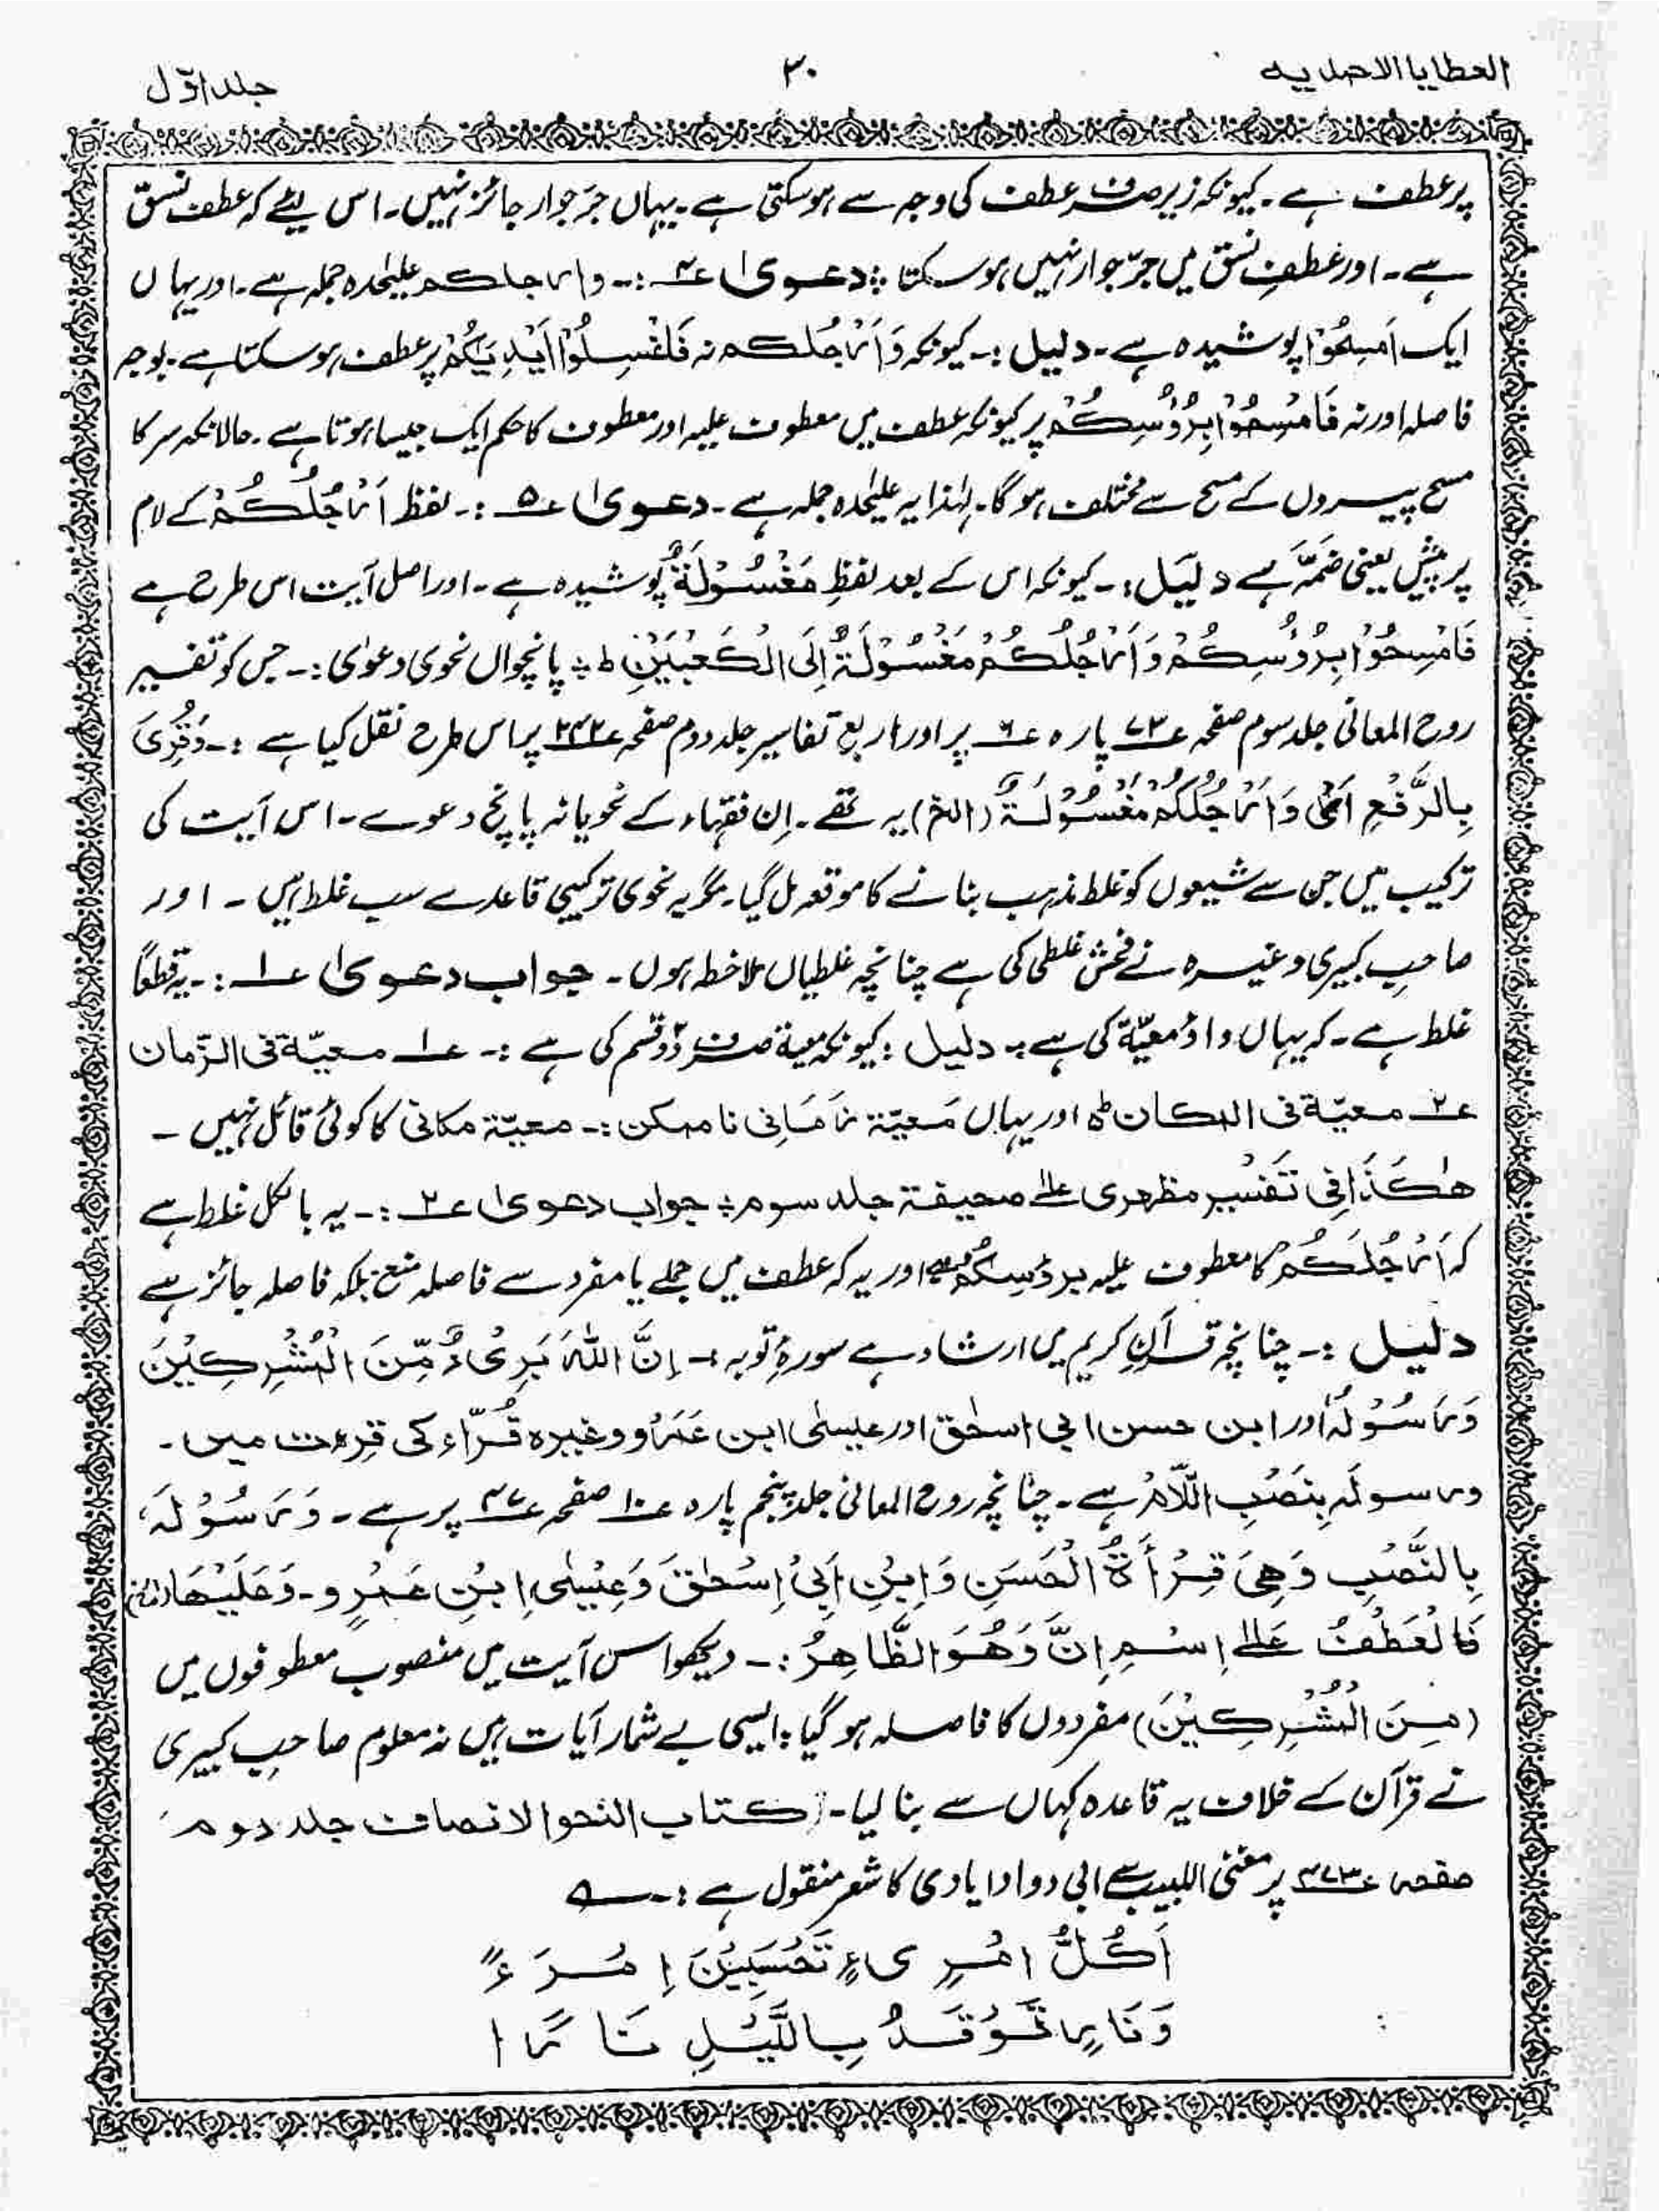 العطایا الاحمدیہ ۳۰ جلد اوّل
پر عطف ہے۔ کیونکہ زیر صرف عطف کی وجہ سے ہو سکتی ہے۔ یہاں جرّ جوار جائز نہیں۔ اس لیئے کہ عطف نسق
ہے۔ اور عطفِ نسق میں جرّ جوار نہیں ہو سکتا ؛ دعویٰ ۴؎ :۔ وارجلکم علیٰحدہ جملہ ہے۔ اور یہاں
ایک اَمْسِحُوْا پوشیدہ ہے۔ دلیل :۔ کیونکہ وَاَرْجُلَکم نہ فَاغْسِلُوْا اَیْدِیَکُمْ پر عطف ہو سکتا ہے۔ بوجہ
فاصلہ اور نہ فَامْسِحُوْا بِرُؤُسِکُمْ پر کیونکہ عطف میں معطوف علیہ اور معطوف کا حکم ایک جیسا ہوتا ہے۔ حالانکہ سر کا
مسح پیروں کے مسح سے مختلف ہو گا۔ لہٰذا یہ علیٰحدہ جملہ ہے۔ دعویٰ ۵؎ :۔ لفظ اَرْجُلُکُمْ کے لام
پر پیش یعنی ضَمَّہ ہے دلیل :۔ کیونکہ اس کے بعد لفظِ مَغْسُوْلَةٌ پوشیدہ ہے۔ اور اصل آیت اس طرح ہے
فَامْسِحُوْا بِرُؤُسِکُمْ وَاَرْجُلُکُمْ مَغْسُوْلَةٌ اِلَی الْکَعْبَیْنِ ط ؛ پانچواں نحوی دعویٰ :۔ جس کو تفسیر
روح المعانی جلد سوم صفحہ ۷۳؎ پارہ ۶؎ پر اور اربع تفاسیر جلد دوم صفحہ ۲۴۲؎ پر اس طرح نقل کیا ہے :۔ وَقُرِیَٔ
بِالرَّفْعِ اَیْ وَاَرْجُلُکُمْ مَغْسُوْلَةٌ (الخ) یہ تھے۔ اِن فقہاء کے نحویانہ پانچ دعوے۔ اس آیت کی
ترکیب میں جن سے شیعوں کو غلط مذہب بنانے کا موقعہ مل گیا۔ مگر یہ نحوی ترکیبی قاعدے سب غلط ہیں۔ اور
صاحبِ کبیری وغیرہ نے فحش غلطی کی ہے چنانچہ غلطیاں ملاحظہ ہوں۔ جواب دعویٰ ۱؎ :۔ یہ قطعًا
غلط ہے۔ کہ یہاں واؤ معیّۃ کی ہے ؛ دلیل : کیونکہ معیۃ صرف دوؔ قسم کی ہے :۔ ۱؎ معیّۃ فی الزّمان
۲؎ معیّۃ فی المکان ط اور یہاں مَعیّۃ زَمَانِی ناممکن :۔ معیّۃ مکانی کا کوئی قائل نہیں۔
ھٰکَذَا فِی تَفْسِیرِ مظہری علےٰ صحیفۃ جلد سوم ؛ جواب دعویٰ ۲؎ :۔ یہ بالکل غلط ہے
کہ اَرْجُلَکُمْ کا معطوف علیہ برؤسِکُمْ ہے اور یہ کہ عطف میں جملے یا مفرد سے فاصلہ منع بلکہ فاصلہ جائز ہے
دلیل :۔ چنانچہ قرآنِ کریم میں ارشاد ہے سورۂ توبہ :۔ اِنَّ اللہَ بَرِیْءٌ مِّنَ الْمُشْرِکِیْنَ
وَرَسُوْلُہٗ اور ابن حسن ابی اسحٰق اور عیسیٰ ابن عَمَرْو وغیرہ قُرّاء کی قرءت میں۔
ورسولَہٗ بِنَصْبِ اللّامْ ہے۔ چنانچہ روح المعانی جلد پنجم پارہ ۱۰؎ صفحہ ۴۷؎ پر ہے۔ وَرَسُوْلَہٗ
بِالنَّصْبِ وَھِیَ قِرْأَةُ الْحَسَنِ وَابْنِ اَبِیْ اِسْحٰقَ وَعِیْسٰی ابْنِ عَمْرٍو۔ وَعَلَیْھَا (الخ)
فَالْعَطْفُ عَلےٰ اِسْمِ اِنَّ وَھُوَ الظَّاھِرُ :۔ دیکھو اس آیت میں منصوب معطوفوں میں
(مِنَ الْمُشْرِکِیْنَ) مفردوں کا فاصلہ ہو گیا ؛ ایسی بے شمار آیات ہیں نہ معلوم صاحبِ کبیری
نے قرآن کے خلاف یہ قاعدہ کہاں سے بنا لیا۔ کتاب النحو الانصاف جلد دوم
صفحہ ۴۷۳؎ پر مغنی اللبیب سے ابی دواد ایادی کا شعر منقول ہے :۔
اَکُلُّ امْرِیءٍ تَحْسَبِیْنَ اِمْرَءً
وَنَارٍ تَوَقَّدُ بِاللَّیْلِ نَارًا